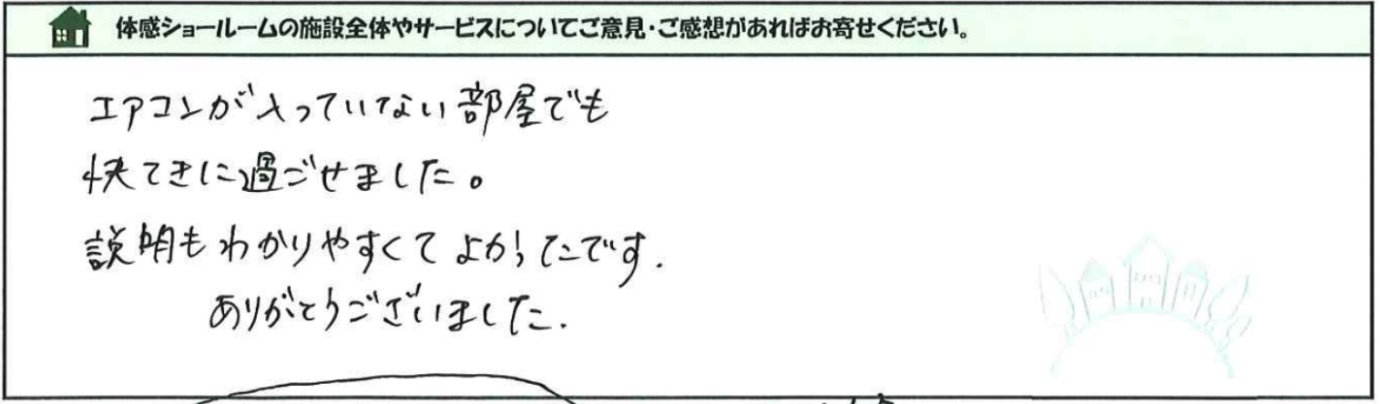 体感ショールームの施設全体やサービスについてご意見・ご感想があればお寄せください。
エアコンが入っていない部屋でも
快てきに過ごせました。
説明もわかりやすくてよかったです.
ありがとうございました.